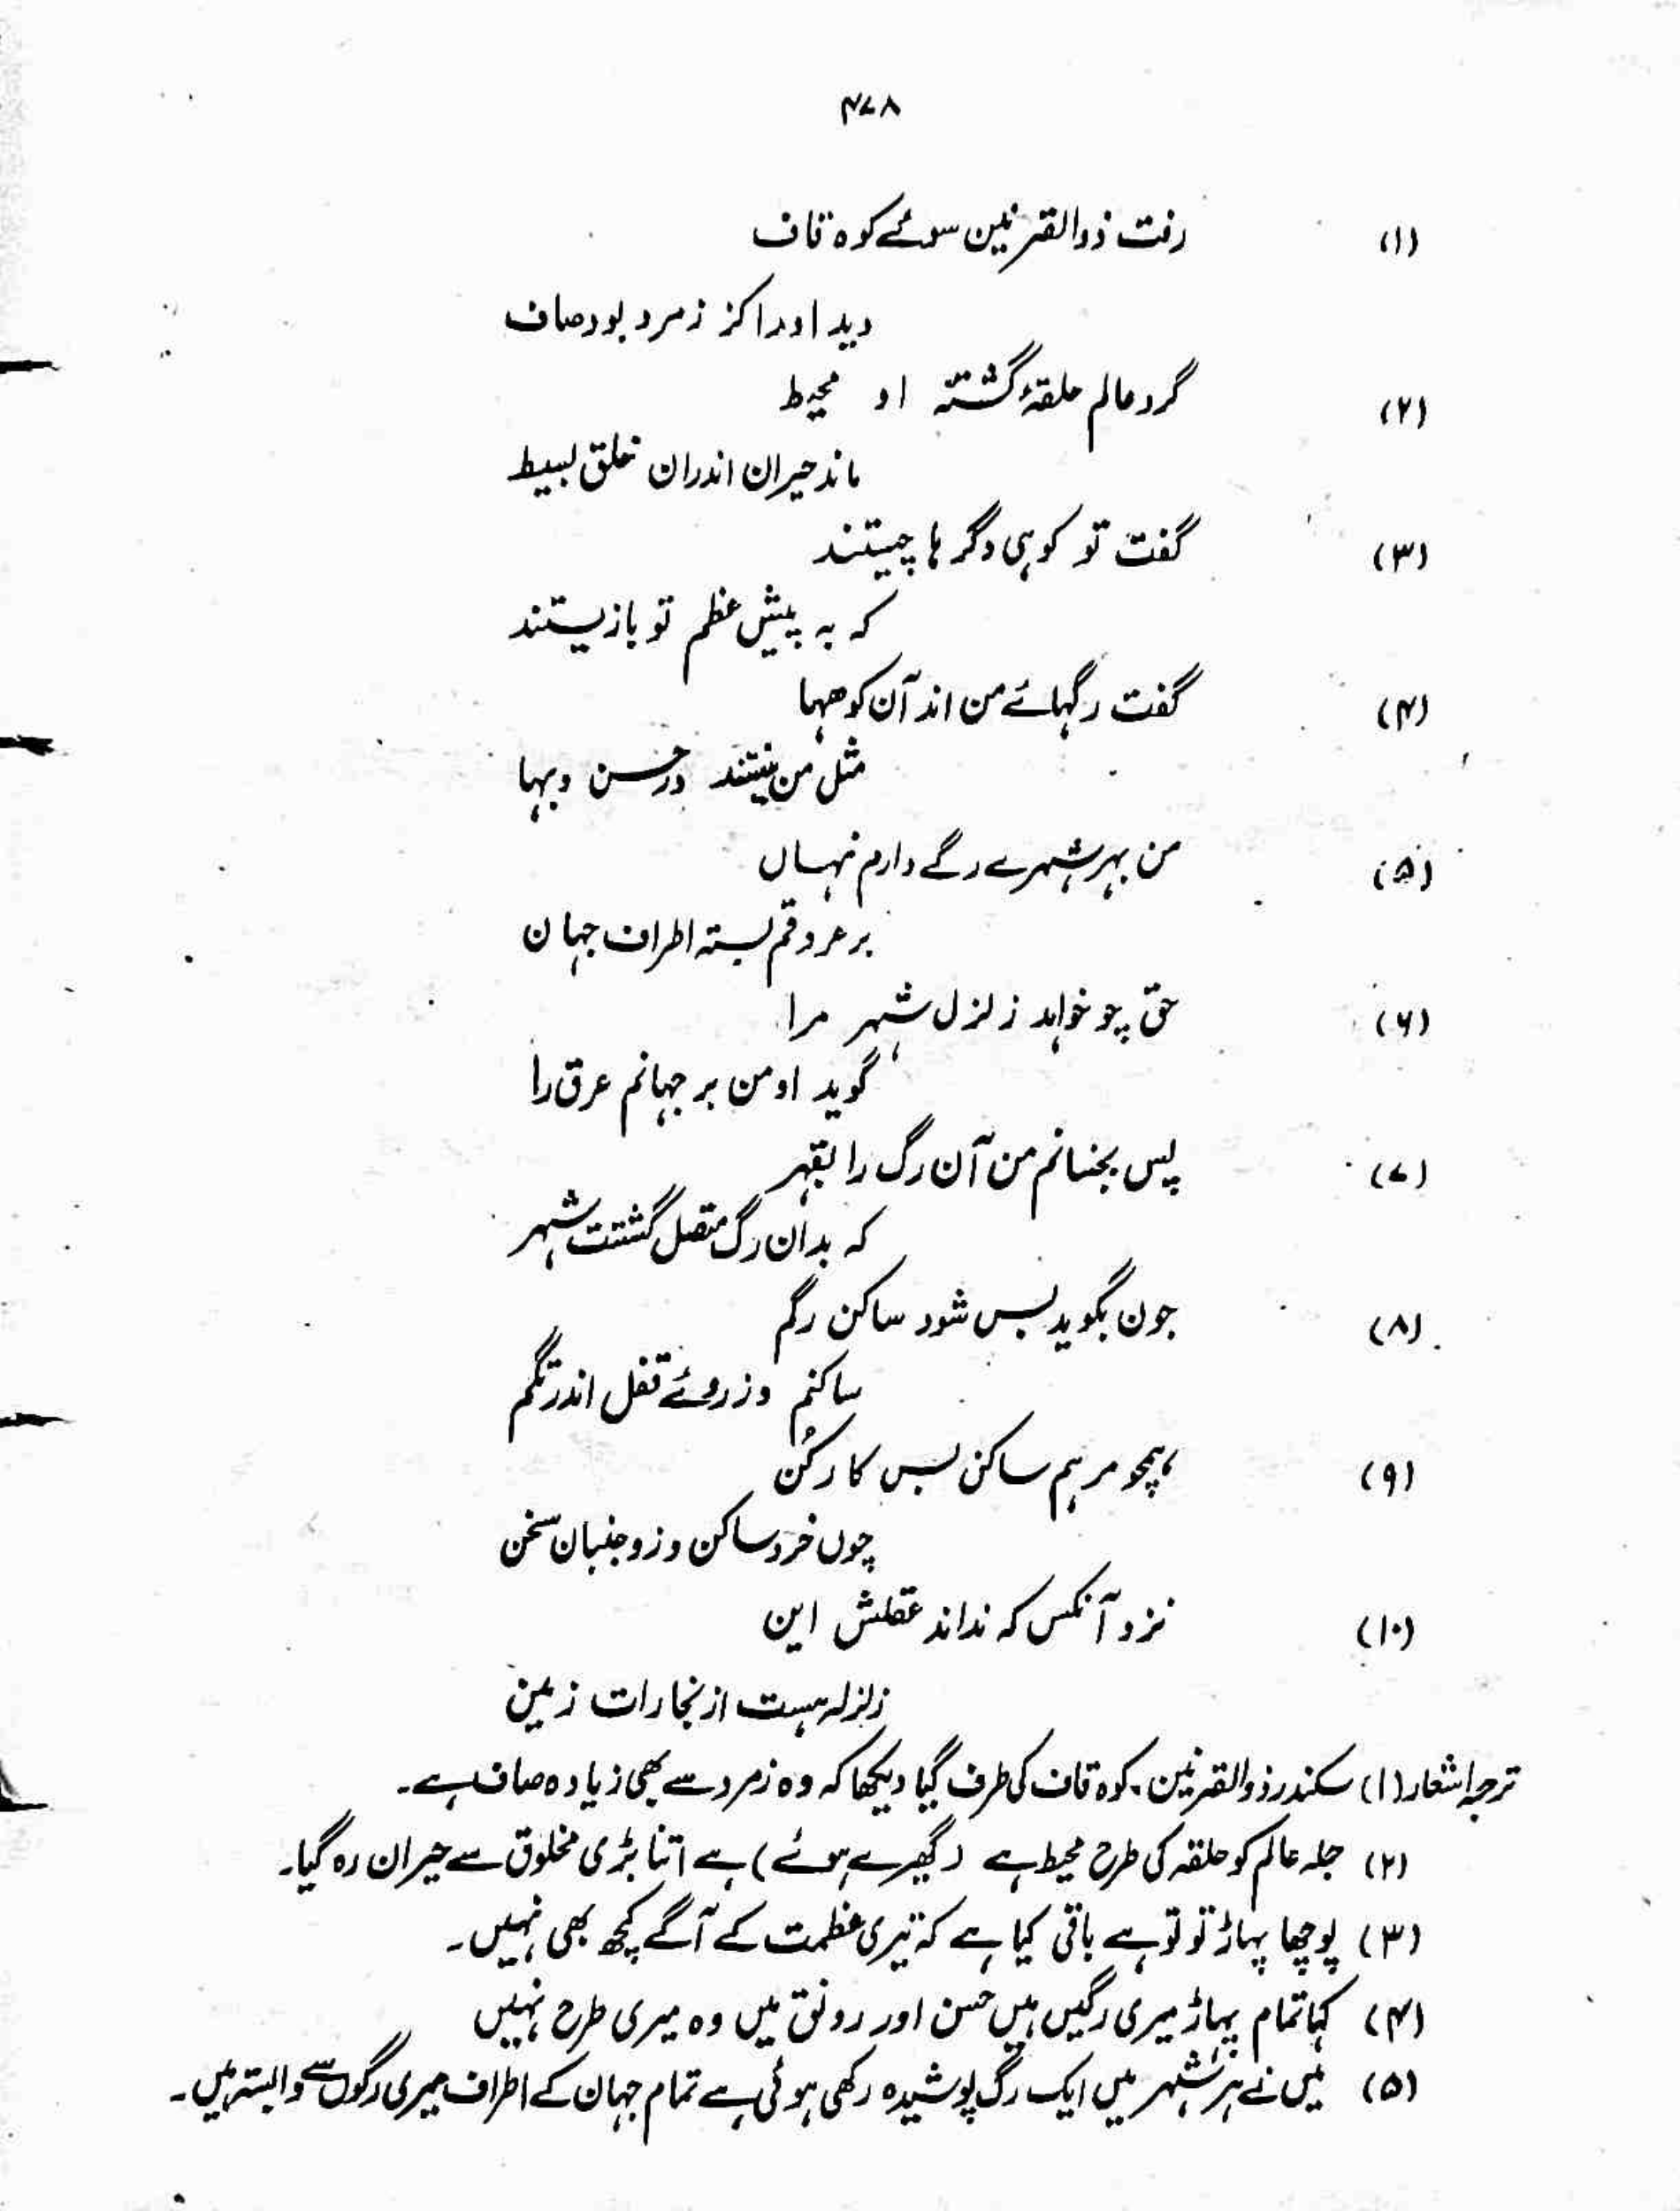 ۴۷۸
(۱) رفت ذوالقرنین سوئے کوہ قاف
دید اورا کز زمرد بود صاف
(۲) گرد عالم حلقۂ گشتہ او محیط
ماند حیران اندران خلق بسیط
(۳) گفت تو کوہی دگر ہا چیستند
کہ بہ پیش عظم تو بازیستند
(۴) گفت رگہائے من اند آن کوھہا
مثل من نیستند در حسن وبہا
(۵) من بہر شہرے رگے دارم نہاں
بر عروقم بستہ اطراف جہان
(۶) حق چو خواہد زلزل شہر مرا
گوید او من بر جہانم عرق را
(۷) پس بجنبانم من آن رگ را بقہر
کہ بدان رگ متصل گشتست شہر
(۸) جون بگوید بس شود ساکن رگم
ساکنم وز روئے فعل اندر تگم
(۹) ہمچو مرہم ساکن بس کارکُن
چوں خرد ساکن وزو جنبان سخن
(۱۰) نزد آنکس کہ نداند عقلش این
زلزلہ ہست از بخارات زمین
ترجمہ اشعار (۱) سکندر ذوالقرنین کوہ قاف کی طرف گیا دیکھا کہ وہ زمرد سے بھی زیادہ صاف ہے۔
(۲) جملہ عالم کو حلقہ کی طرح محیط ہے (گھیرے ہوئے) ہے اتنا بڑی مخلوق سے حیران رہ گیا۔
(۳) پوچھا پہاڑ تو تو ہے باقی کیا ہے کہ تیری عظمت کے آگے کچھ بھی نہیں۔
(۴) کہا تمام پہاڑ میری رگیں ہیں حسن اور رونق میں وہ میری طرح نہیں
(۵) میں نے ہر شہر میں ایک رگ پوشیدہ رکھی ہوئی ہے تمام جہان کے اطراف میری رگوں سے وابستہ ہیں۔